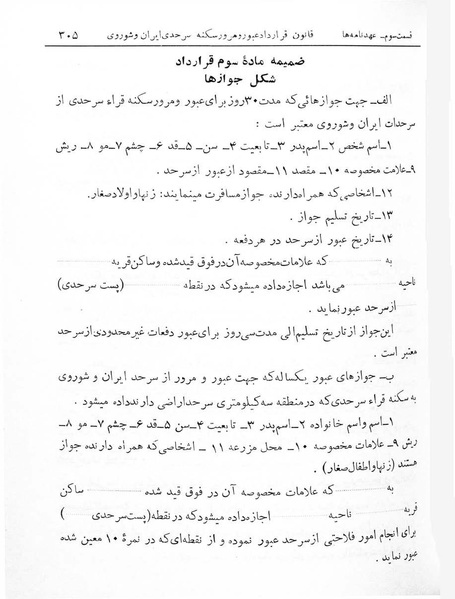 قسمت سوم ـ عهدنامه‌ها قانون قرارداد عبور و مرور سکنه سرحدی ایران و شوروی ۳۰۵
ضمیمه مادهٔ سوم قرارداد
شکل جوازها
الف ـ جهت جوازهائی که مدت ۳۰ روز برای عبور و مرور سکنه قراء سرحدی از
سرحدات ایران و شوروی معتبر است :
۱ـ اسم شخص ۲ـ اسم پدر ۳ـ تابعیت ۴ـ سن ۵ـ قد ۶ـ چشم ۷ـ مو ۸ـ ریش
۹ـ علامت مخصوصه ۱۰ـ مقصد ۱۱ـ مقصود از عبور از سرحد .
۱۲ـ اشخاصی که همراه دارنده جواز مسافرت مینمایند : زنها و اولاد صغار .
۱۳ـ تاریخ تسلیم جواز .
۱۴ـ تاریخ عبور از سرحد در هر دفعه .
به که علامات مخصوصه آن در فوق قید شده و ساکن قریه
ناحیه می‌باشد اجازه داده میشود که در نقطه (پست سرحدی)
از سرحد عبور نماید .
این جواز از تاریخ تسلیم الی مدت سی روز برای عبور دفعات غیر محدودی از سرحد
معتبر است .
ب ـ جوازهای عبور یکساله که جهت عبور و مرور از سرحد ایران و شوروی
به سکنه قراء سرحدی که در منطقه سه کیلومتری سرحد اراضی دارند داده میشود .
۱ـ اسم و اسم خانواده ۲ـ اسم پدر ۳ـ تابعیت ۴ـ سن ۵ـ قد ۶ـ چشم ۷ـ مو ۸ـ
ریش ۹ـ علامات مخصوصه ۱۰ـ محل مزرعه ۱۱ ـ اشخاصی که همراه دارنده جواز
هستند (زنها و اطفال صغار) .
به که علامات مخصوصه آن در فوق قید شده ساکن
قریه ناحیه اجازه داده میشود که در نقطه (پست سرحدی )
برای انجام امور فلاحتی از سرحد عبور نموده و از نقطه‌ای که در نمرهٔ ۱۰ معین شده
عبور نماید .